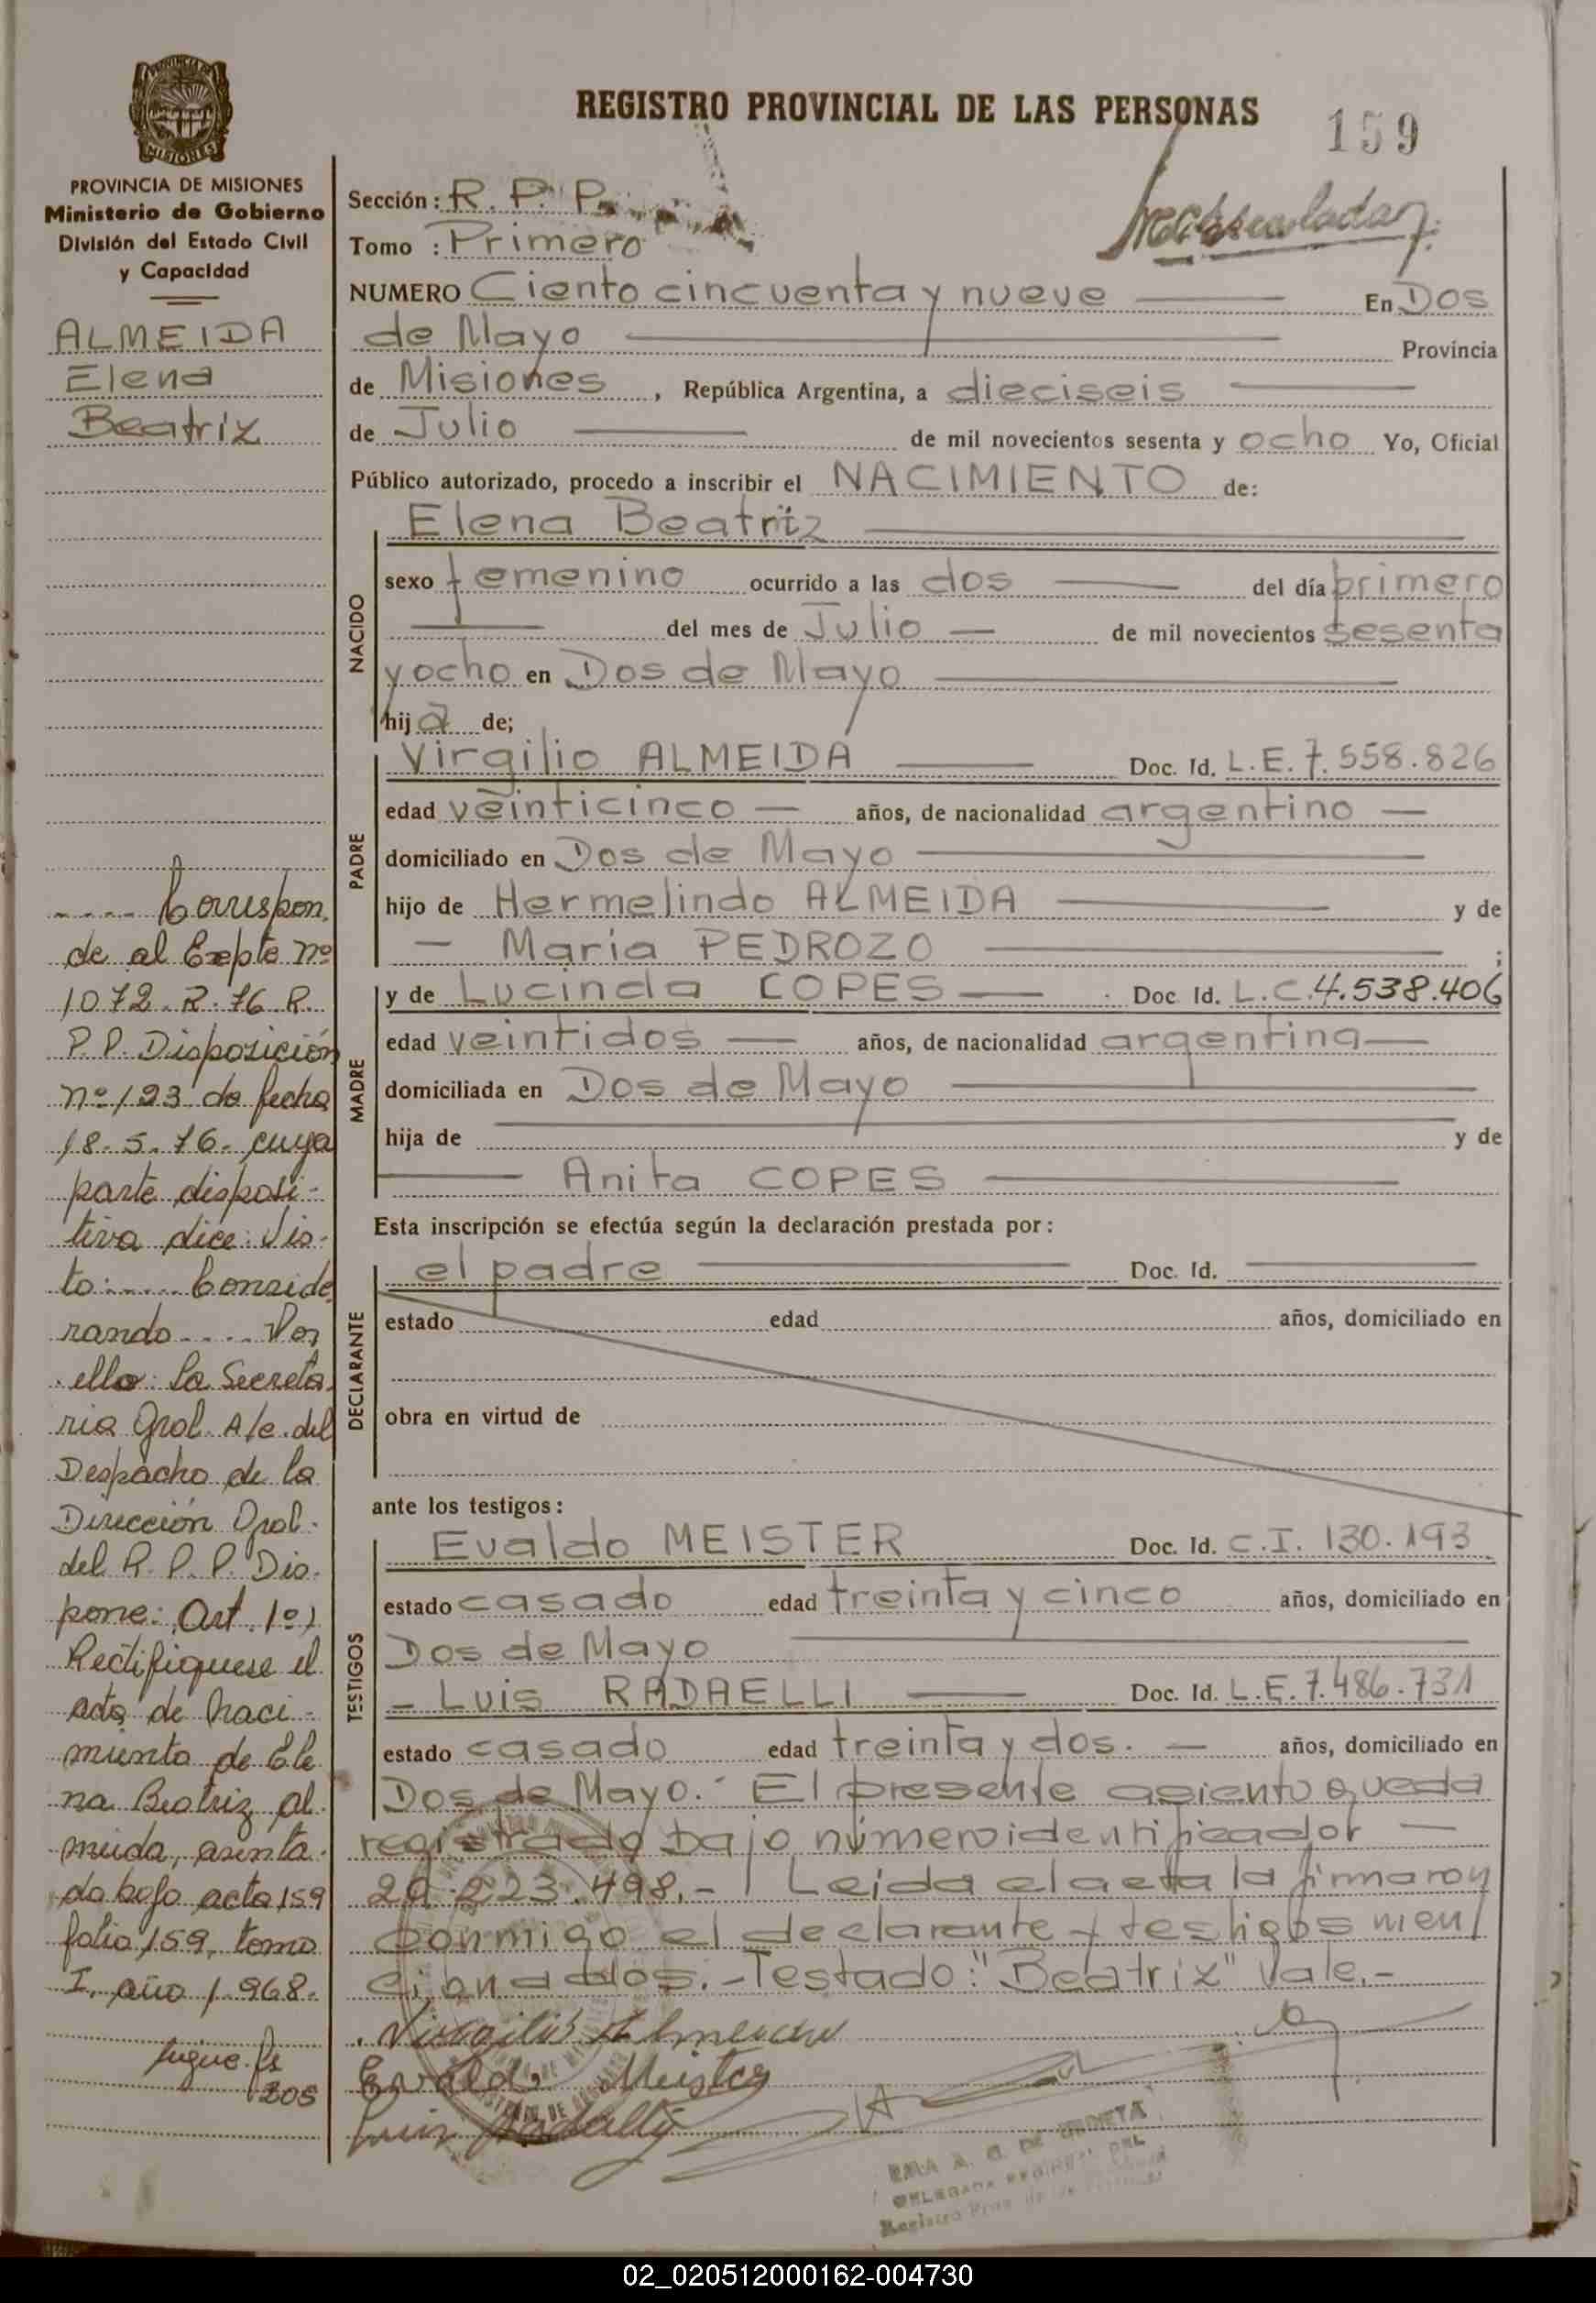 REGISTRO PROVINCIAL DE LAS PERSONAS
159
PROVINCIA DE MISIONES
Ministerio de Gobierno
División del Estado Civil
y Capacidad
ALMEIDA
Elena
Beatriz
..... Correspon
de al Expte nº
1072.R.76.R.
P.P. Disposición
nº 123 de fecha
18.5.76. cuya
parte disposi-
tiva dice: Vis-
to:..... Conside
rando.... Por
ello: La Secreta
ria Gral. A/c. del
Despacho de la
Dirección Gral.
del R.P.P. Dis-
pone: Art. 1º)
Rectifiquese el
acta de naci-
miento de Ele
na Beatriz Al
meida, asenta-
da bajo acta 159
folio 159, tomo
I, año 1.968.
sigue fs
305
Sección: R. P. P.
Tomo : Primero
NUMERO Ciento cincuenta y nueve En Dos
de Mayo Provincia
de Misiones, República Argentina, a dieciseis
de Julio de mil novecientos sesenta y ocho Yo, Oficial
Público autorizado, procedo a inscribir el NACIMIENTO de:
NACIDO
Elena Beatriz
sexo femenino ocurrido a las dos del día primero
del mes de Julio de mil novecientos sesenta
y ocho en Dos de Mayo
hija de;
PADRE
Virgilio ALMEIDA Doc. Id. L.E. 7.558.826
edad veinticinco años, de nacionalidad argentino
domiciliado en Dos de Mayo
hijo de Hermelindo ALMEIDA y de
María PEDROZO ;
MADRE
y de Lucinda COPES Doc Id. L.C. 4.538.406
edad veintidos años, de nacionalidad argentina
domiciliada en Dos de Mayo
hija de y de
Anita COPES
Esta inscripción se efectúa según la declaración prestada por:
DECLARANTE
el padre Doc. Id.
estado edad años, domiciliado en
obra en virtud de
ante los testigos:
TESTIGOS
Evaldo MEISTER Doc. Id. C.I. 130.193
estado casado edad treinta y cinco años, domiciliado en
Dos de Mayo
- Luis RADAELLI Doc. Id. L.E. 7.486.731
estado casado edad treinta y dos. años, domiciliado en
Dos de Mayo.- El presente asiento queda
registrado bajo número identificador
20.223.498.- Leida el acta la firmaron
conmigo el declarante y testigos men
cionados.- Testado: "Beatriz" Vale.-
Virgilio Almeida
Evaldo Meister
Luis Radaelli
DELEGADA
02_020512000162-004730